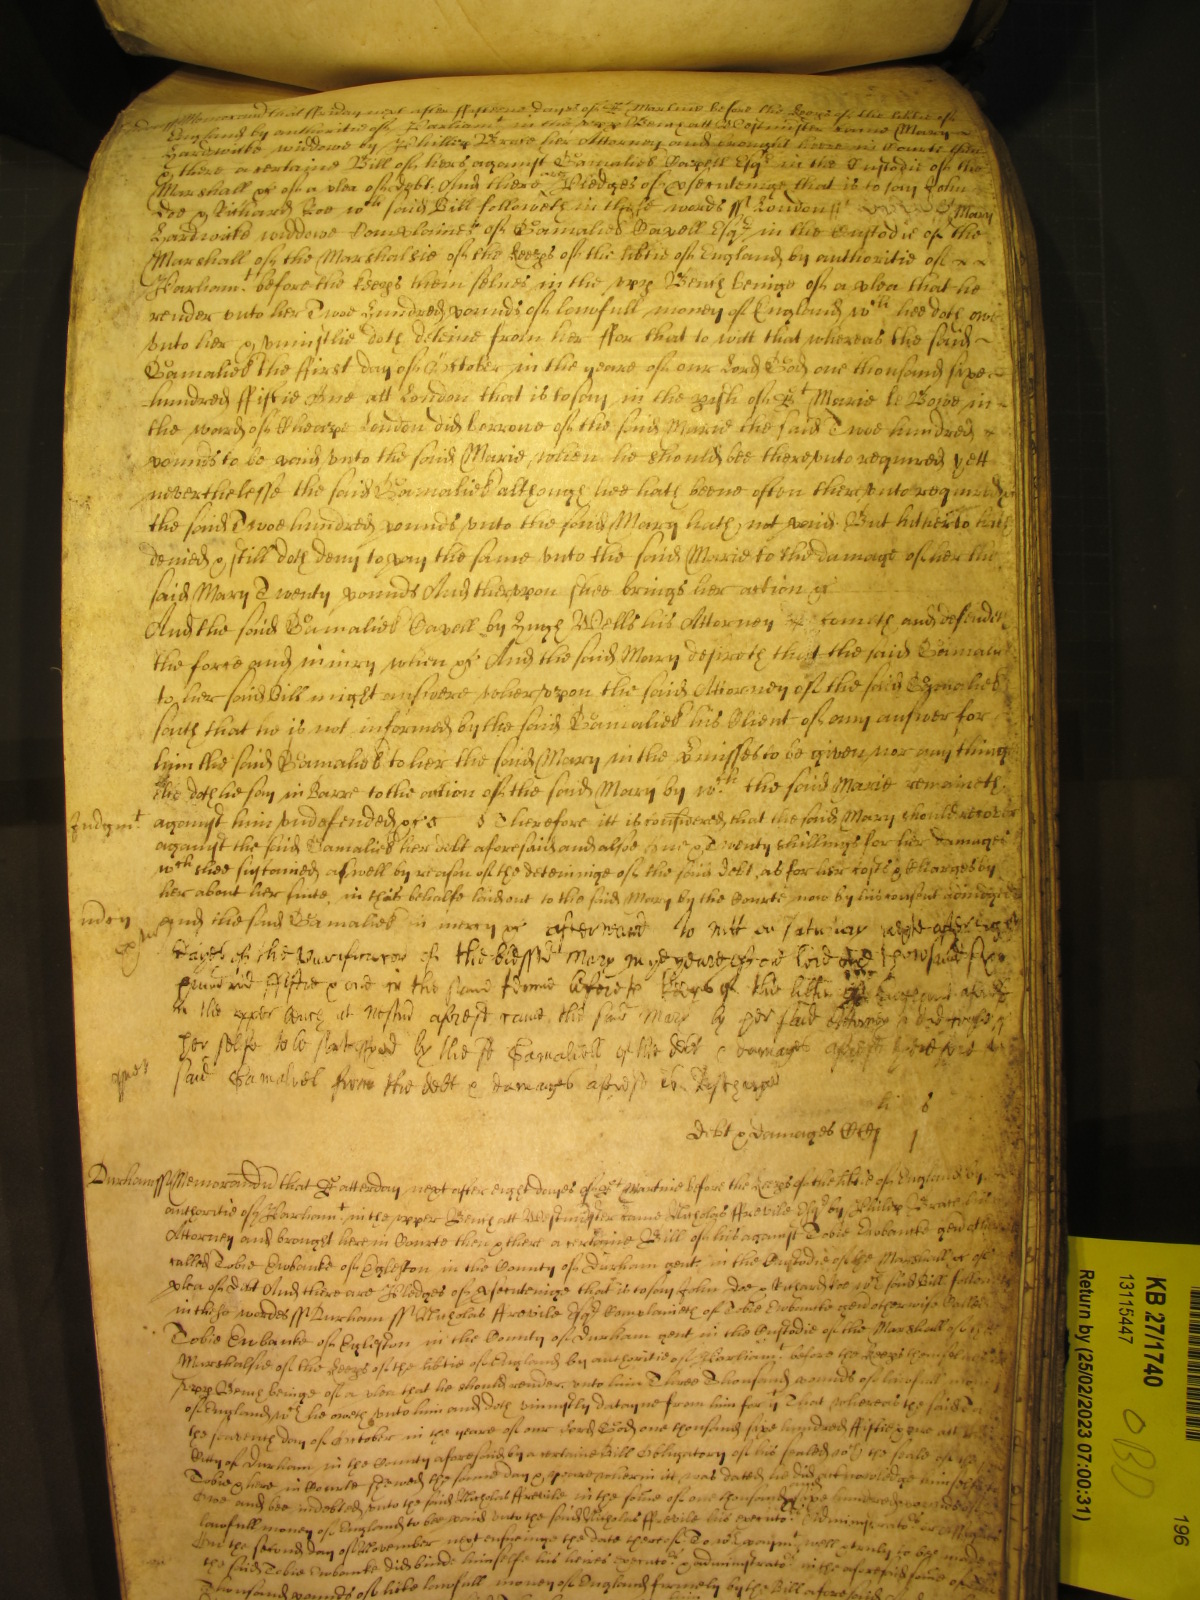 Memorand that ffriday next after ffifteene dayes of St Martine before the Keeps of the libtie of
England by authoritie of Parliamt in the upp Bench att Westminster came Mary
Hardwicke widdowe by Phillip Brace her Attorney and brought here in Courte then
& there a certaine Bill of hers against Gamaliel Savell Esqr in the Custodie of the
Marshall &c of a plea of debt. And there are Pledges of psecuteinge that is to say John
Doe & Richard Roe wch said Bill followeth in these words ss London ss Mary
Hardwicke widdowe Complaines of Gamaliel Savell Esqr in the Custodie of the
Marshall of the Marshalsie of the Keeps of the libtie of England by authoritie of
Parliamt before the Keeps them selves in the upp Bench beinge of a plea that he
render unto her Twoe hundred pounds of lawfull money of England wch hee doth owe
unto her & uniustlie doth deteine from her ffor that to witt that whereas the said
Gamaliel the ffirst day of October in the yeare of our Lord God one thousand sixe
hundred ffiftie One att London that is to say in the pish of St Marie le Bowe in
the ward of Cheape London did borrowe of the said Marie the said Twoe hundred
pounds to be paid unto the said Marie when he should bee thereunto required yett
neverthelesse the said Gamaliel although hee hath beene often thereunto required
the said Twoe hundred pounds unto the said Mary hath not paid. But hitherto hath
denied & still doth deny to pay the same unto the said Marie to the damage of her the
said Mary Twenty pounds And thereupon shee brings her action &c
And the said Gamaliel Savell by Hugh Wells his Attorney cometh and defendeth
the force and iniury when &c And the said Mary desireth that the said Gamaliel
to her said Bill might answere whereupon the said Attorney of the said Gamaliel
saith that he is not informed by the said Gamaliel his Client of any answer for
him the said Gamaliel to her the said Mary in the Pmisses to be given nor any thinge
else doth he say in Barre to the action of the said Mary by wch the said Marie remaineth
Judgmt against him undefended &c Therefore itt is considered that the said Mary should recover
against the said Gamaliel her debt aforesaid and alsoe Twenty shillings for her damages
wch shee sustained aswell by reason of the deteininge of the said Debt as for her costs & charges by
her about her suite in this behalfe laid out to the said Mary by the Courte now by his consent adiudged
mercy And the said Gamaliel in mercy &c afterward to witt on Saturday next after eight
dayes of the Purificacon of the blessed Mary in ye yeare of our Lord one thousand six
hundred ffiftie & one in the same Terme before ye Keeps of the libtie of England aforesd
in the upper bench at Westmr aforesd came the said Mary by her said Attorney & did acknowledge
her selfe to be satisfyed by the sd Gamaliell of the debt & damages aforesd therefore the
said Gamaliel from the debt & damages aforesd is discharged
li s
Debt & damages CCj j
Durham ss Memorand that Satterday next after eight dayes of St Martine before the Keeps of the libtie of England by
authoritie of Parliamt in the upper Bench att Westminster came Nicholas ffrevile Esqr by Philip Brace his
Attorney and brought here in Courte then & there a certaine Bill of his against Tobie Ewbancke gent otherwise
called Tobie Ewbancke of Egleston in the County of Durham gent in the Custodie of the Marshall &c of
plea of debt And there are Pledges of psecuteinge that is to say John Doe & Richard Roe wch said Bill followeth
in these wordes ss Durham ss Nicholas ffrevile Esqr Complaineth of Tobie Ewbancke gent otherwise called
Tobie Ewbancke of Egleston in the County of Durham gent in the Custodie of the Marshall of the
Marshalsie of the Keeps of the libtie of England by authoritie of Parliamt before the Keeps themselves
upp Bench beinge of a plea that he should render unto him Three Thousand pounds of lawfull money
of England wch he oweth unto him and doth uniustly detayne from him for yt That whereas the said Tobie
the seaventh day of October in the yeare of our Lord God one thousand sixe hundred ffiftie & one att the
Citty of Durham in the County aforesaid by a certaine Bill Obligatory of his sealed wth the seale of the sd
Tobie & here in Courte shewed the same day & yeare wherein it was dated he did acknowledge himselfe to
owe and bee indebted unto the said Nicholas ffrevile in the some of one thousand five hundred pounds of
lawfull money of England to bee paid unto the said Nicholas ffrevile his executrs Administratrs or assignes
on the second day of November next ensueinge the date thereof To wch paymt well & truly to bee made
the said Tobie Ewbancke did binde himselfe his heires executrs & administratrs in the aforesaid some of three
Thousand pounds of like lawfull money of England firmely by the Bill aforesaid
KB 27/1740
13115447
Return by (25/02/2023 07:00:31)
OBD
196